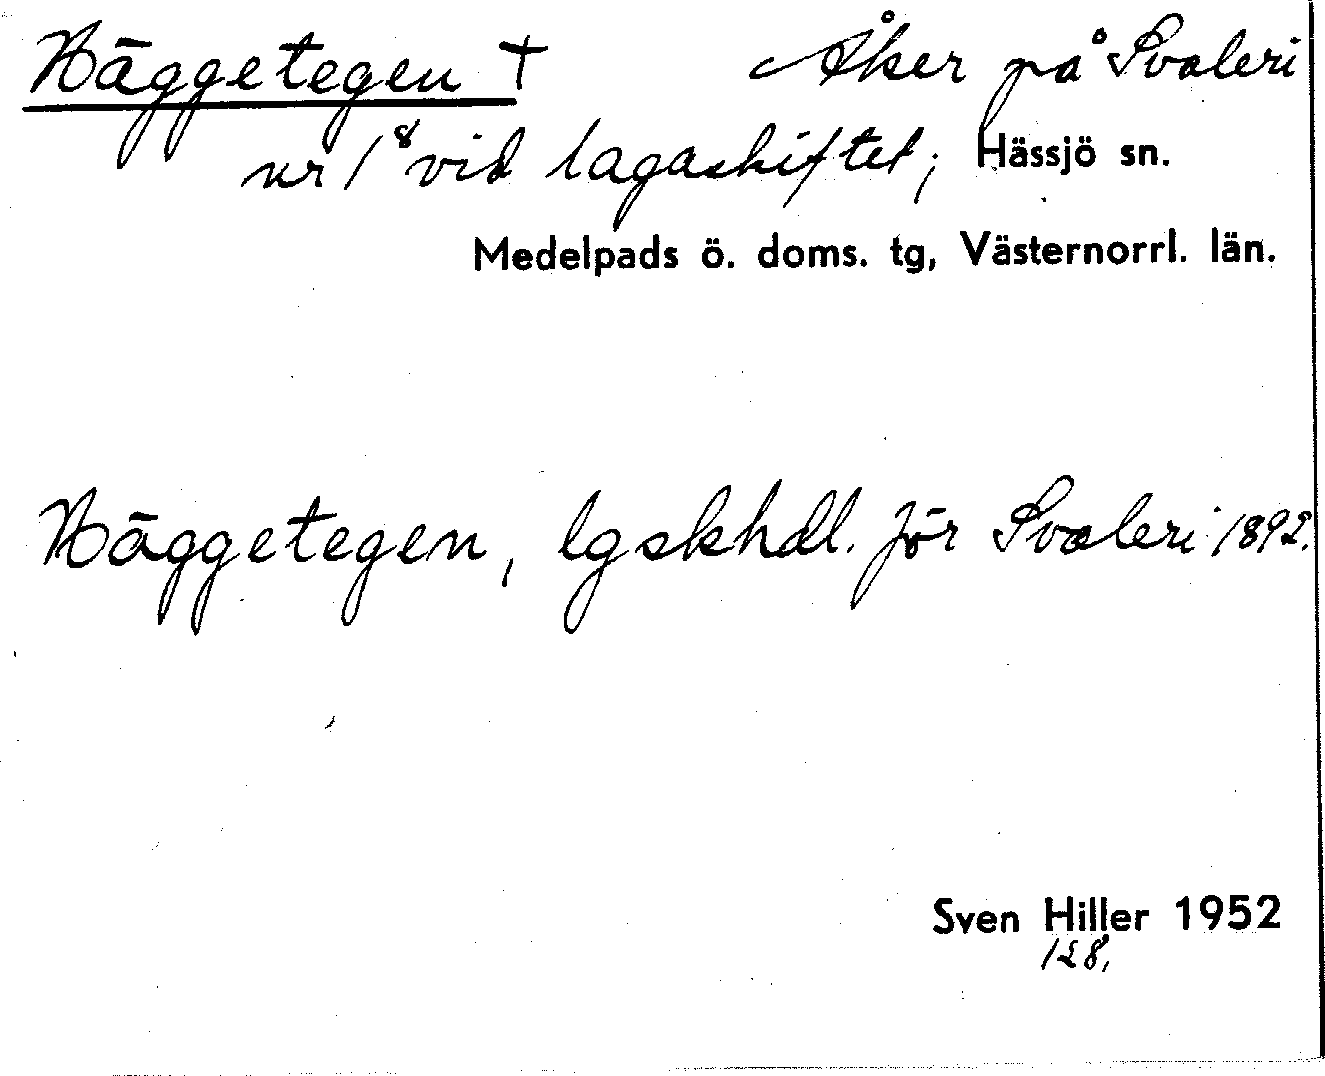 Häggetegen † Åker på Svaleri
nr 1⁸ vid lagaskiftet; Hässjö sn.
Medelpads ö. doms. tg, Västernorrl. län.
Häggetegen, lgskhdl. för Svaleri 1892.
Sven Hiller 1952
128,